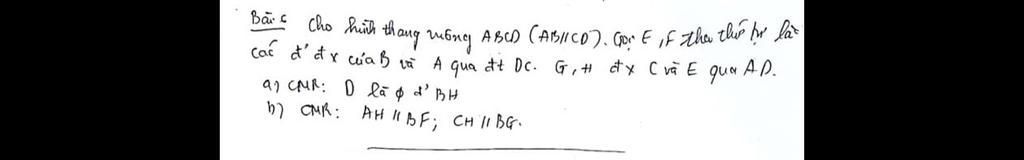 Bài 6 Cho hình thang vuông ABCD (AB//CD). Gọi E, F theo thứ tự là
các đ' đx của B và A qua đt DC. G, H đx C và E qua AD.
a) CMR: D là φ đ' BH
b) CMR: AH // BF; CH // BG.